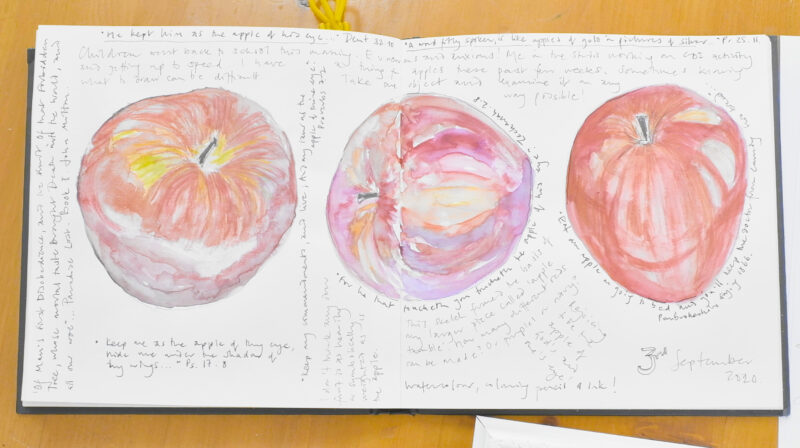 "He kept him as the apple of his eye..." Deut 32:10
"A word fitly spoken, is like apples of gold in pictures of silver." Pr. 25. 11.
Children went back to school this morning. E nervous and anxious! Me in the studio working on CDS activity
and getting up to speed. I have
what to draw can be difficult
thing to apples these past few weeks. Sometimes knowing
Take one object and
it in any
way possible!
'Of Man's First Disobedience, and the Fruit of that Forbidden
Tree, whose mortal taste brought Death into the World, and
all our woe'... Paradise Lost Book 1 John Milton.
"Keep my commandments and live; and my law as the
apple of thine eye."
Proverbs 7:2
"Keep me as the apple of thy eye,
hide me under the shadow of
thy wings..." Ps. 17:8
"For he that toucheth you toucheth the apple of his eye." Zechariah 2:8
"Eat an apple on going to bed and you'll keep the doctor from earning his bread"
Pembrokeshire saying 1866.
I don't think any
fruit is as heavily
as symbolically
weighted as is
the apple.
This sketch formed the basis of
my larger piece called 'apple
trouble'. How many different reds
can be made? Or purples or
watercolour, colouring pencil & ink!
3rd September
2020.